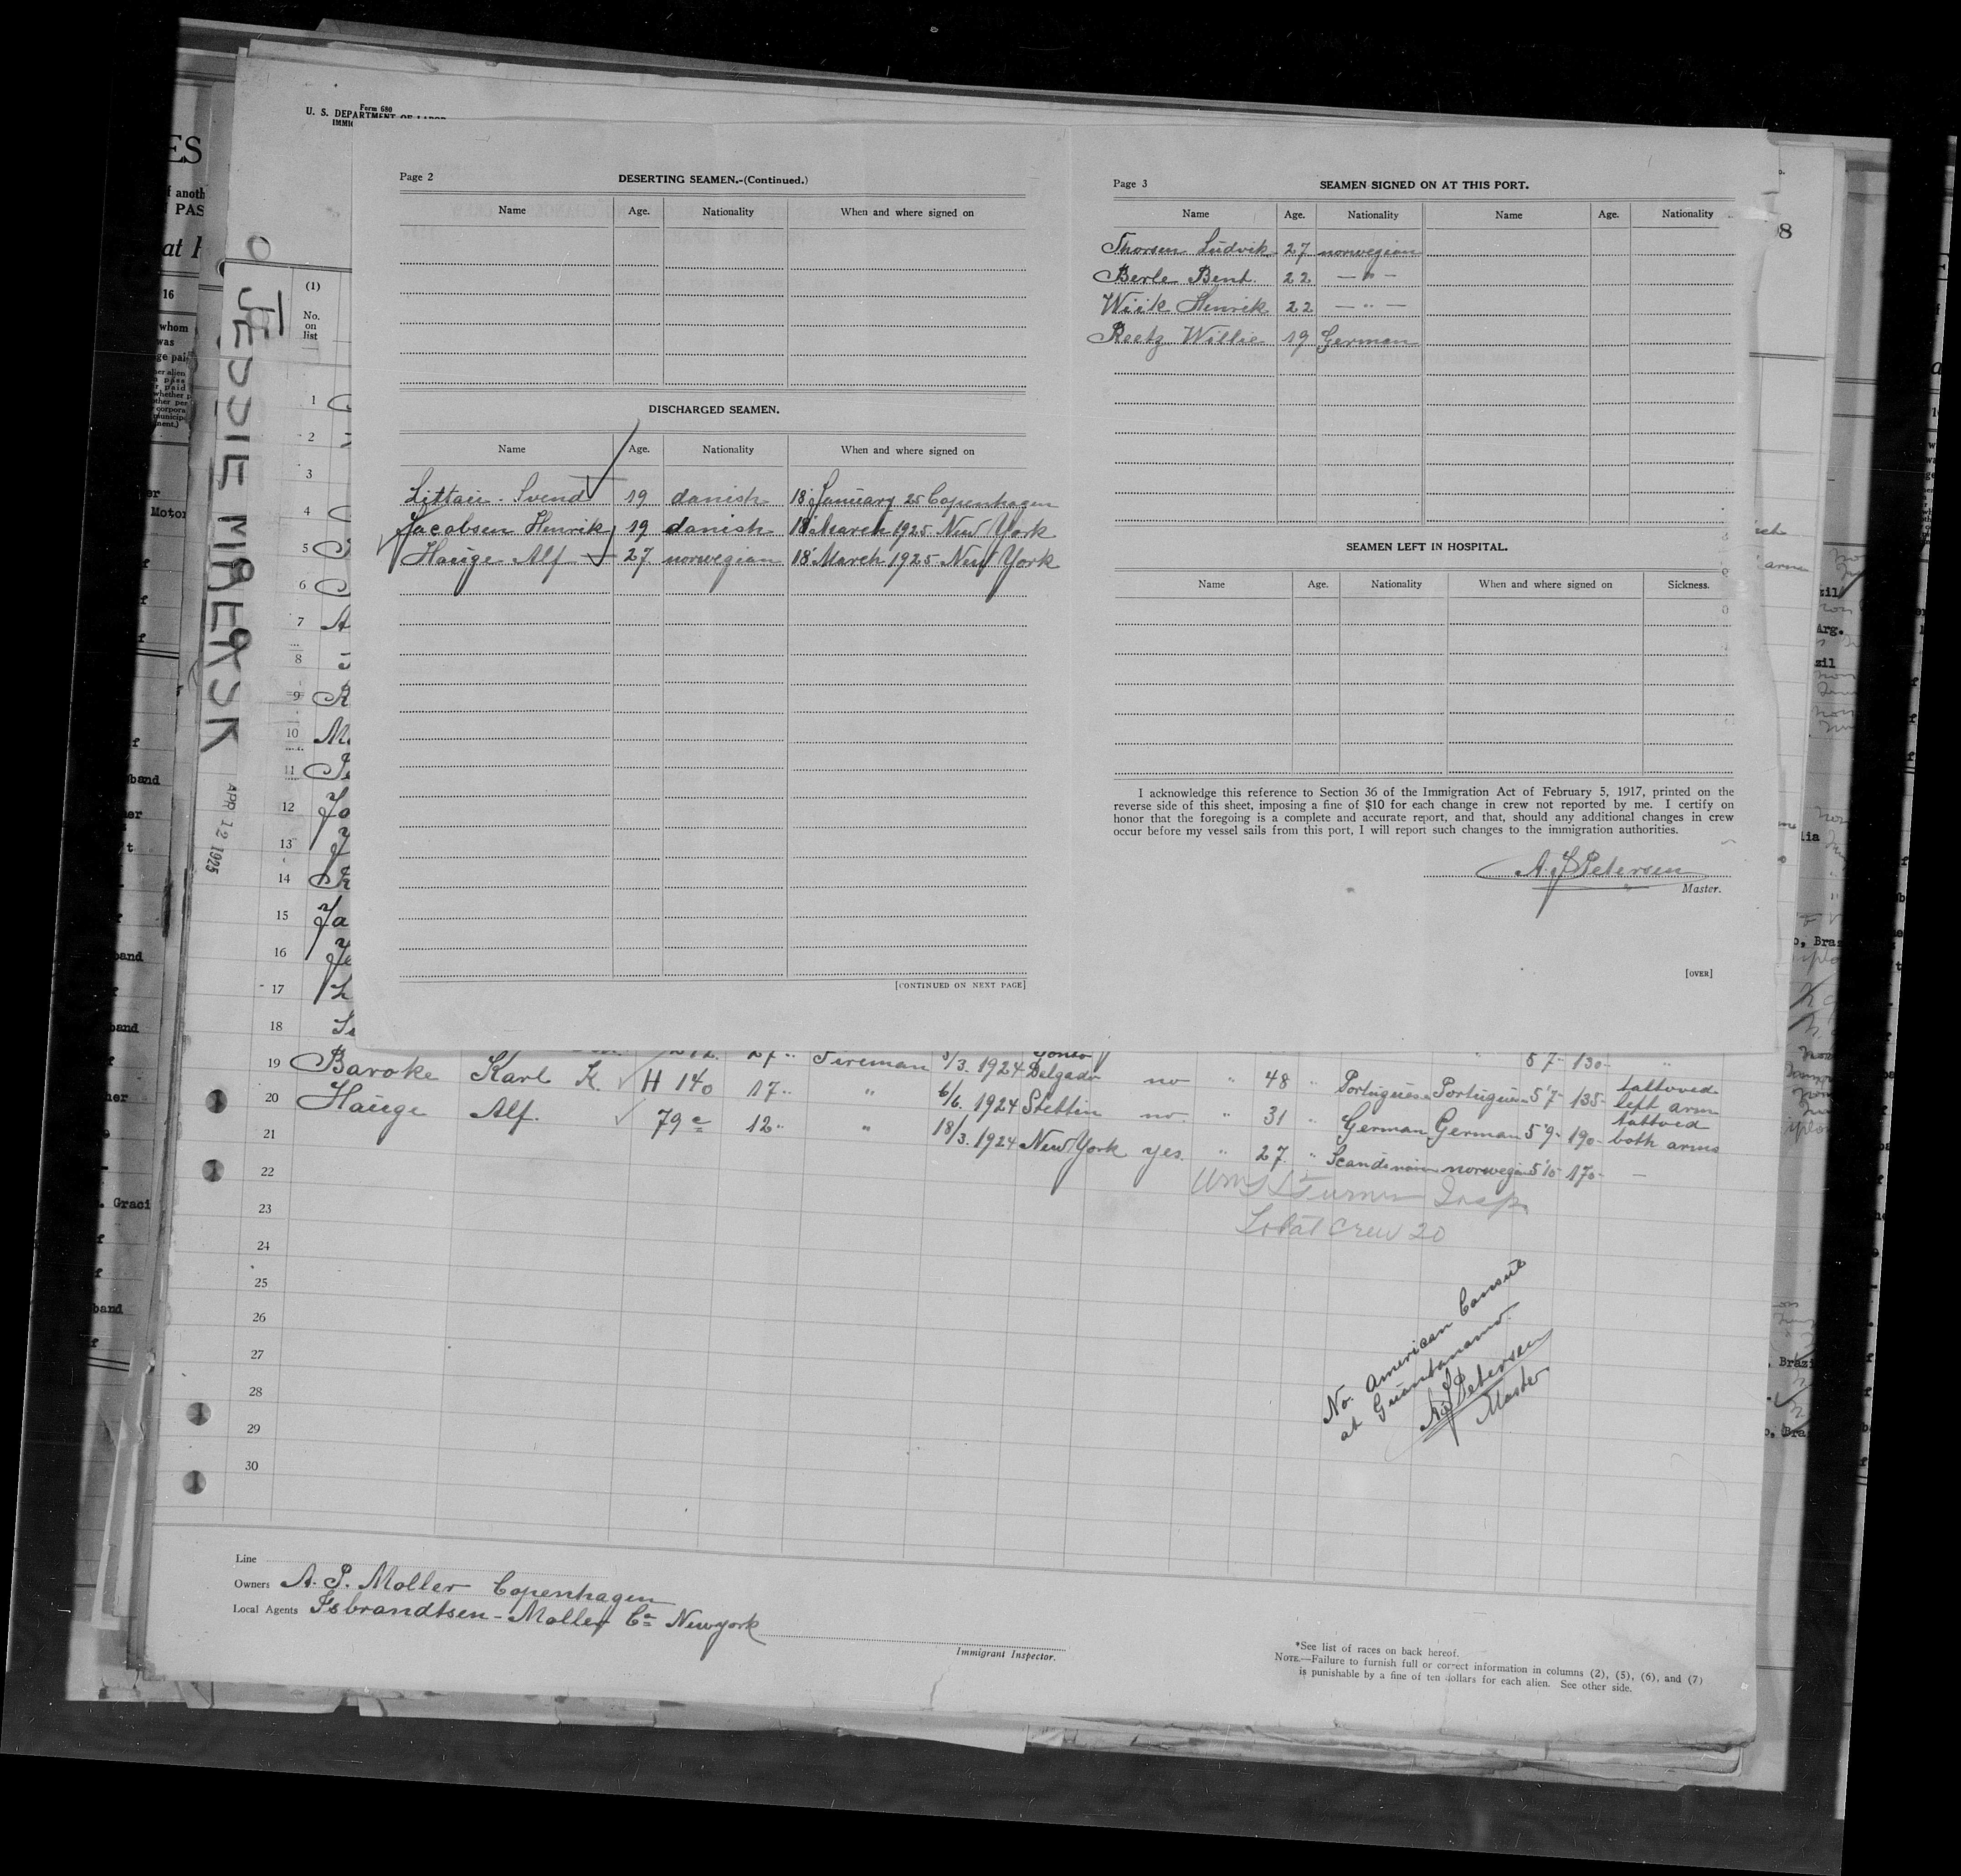 Form 680
U. S. DEPARTMENT OF LABOR
Page 2
DESERTING SEAMEN.-(Continued.)
Name Age. Nationality When and where signed on
DISCHARGED SEAMEN.
Name Age. Nationality When and where signed on
Svend 19 danish 18 January 25 Copenhagen
Jacobsen Henrik 19 danish 18 March 1925 New York
Hauge Alf 27 norwegian 18 March 1925 New York
[CONTINUED ON NEXT PAGE]
Page 3
SEAMEN SIGNED ON AT THIS PORT.
Name Age. Nationality Name Age. Nationality
Thorsen Ludvik 27 norwegian
Berle Bent. 22 — " —
Wiik Henrik 22 — " —
Reetz Willie 19 German
SEAMEN LEFT IN HOSPITAL.
Name Age. Nationality When and where signed on Sickness.
I acknowledge this reference to Section 36 of the Immigration Act of February 5, 1917, printed on the
reverse side of this sheet, imposing a fine of $10 for each change in crew not reported by me. I certify on
honor that the foregoing is a complete and accurate report, and that, should any additional changes in crew
occur before my vessel sails from this port, I will report such changes to the immigration authorities.
Petersen
Master.
[OVER]
JESSIE MAERSK
APR 12 1925
(1)
No.
on
list
1
2
3
4
5
6
7
8
9
10
11
12
13
14
15
16
17
18
27 " Fireman 5/3. 1924 Delgado no " 48 " Portuguese Portuguese 5'7- 135- tattoved left arm
19 Baroke Karl K. H 140 17 " " 6/6. 1924 Stettin no. " 31 " German German 5'9- 190- tattoved both arms
20 Hauge Alf. 79 12 " " 18/3. 1924 New York yes. " 27 " norwegian 5'10- 170- —
21
22
23
24
25
26
27
28
29
30
Turner Insp.
Total Crew 20
No American Consul
at Guantanamo.
Petersen
Master
Line
Owners A. P. Moller Copenhagen
Local Agents Isbrandtsen-Moller Co Newyork
Immigrant Inspector.
*See list of races on back hereof.
NOTE.—Failure to furnish full or correct information in columns (2), (5), (6), and (7)
is punishable by a fine of ten dollars for each alien. See other side.